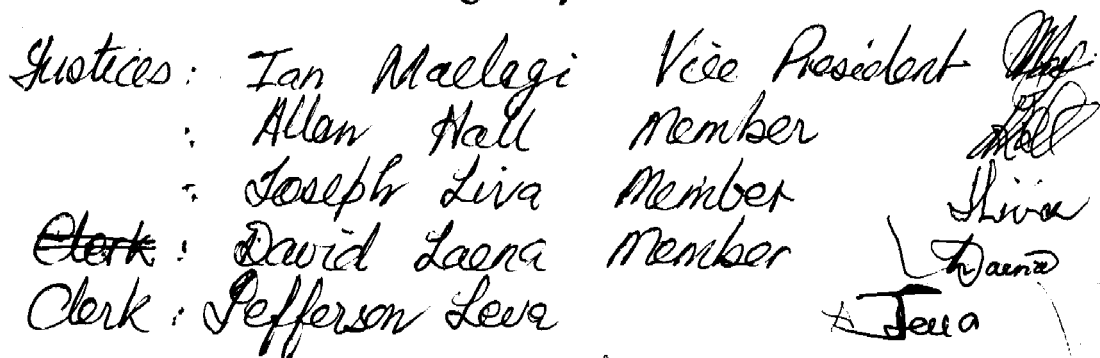 Justices: Ian Maelagi Vice President
: Allan Hall Member
: Joseph Liva Member Jliva
Clerk : David Laena Member Daena
Clerk : Jefferson Leva Jeua